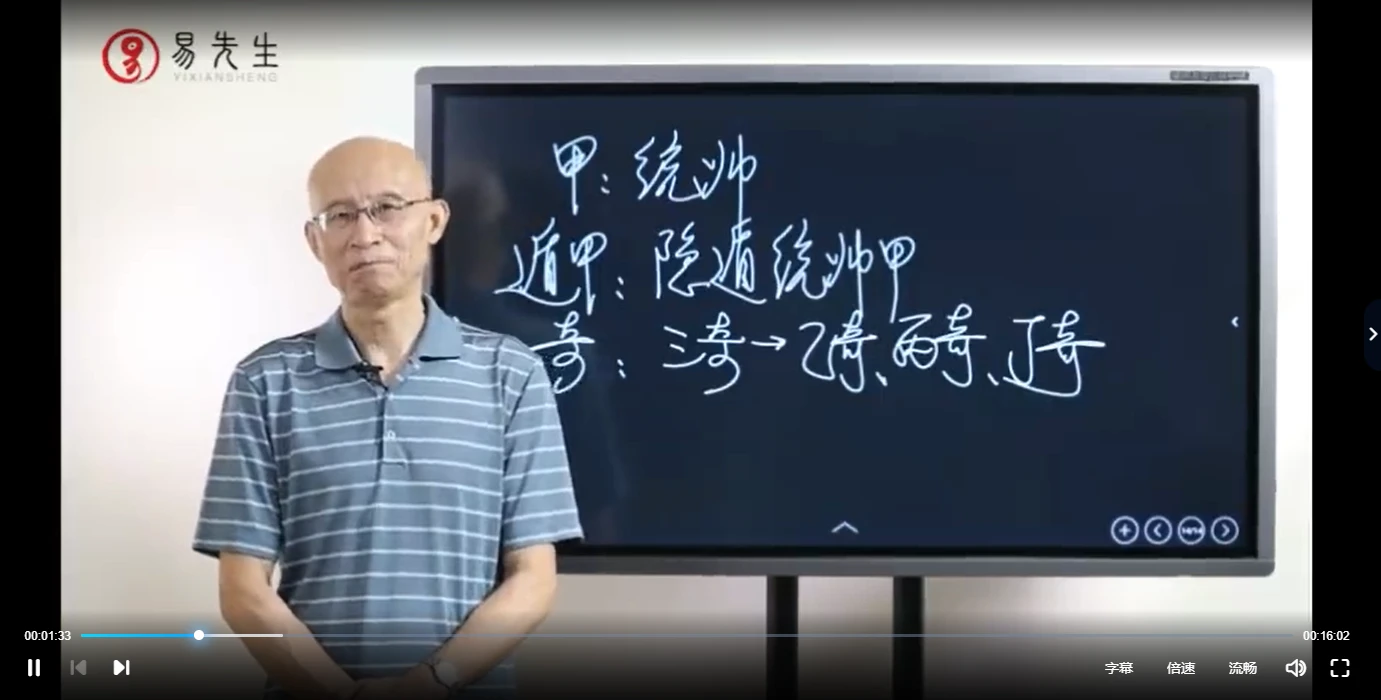 易先生
YIXIANSHENG
甲：统帅
遁甲：隐遁统帅甲
奇：三奇→乙奇、丙奇、丁奇
00:01:33
00:16:02
字幕
倍速
流畅